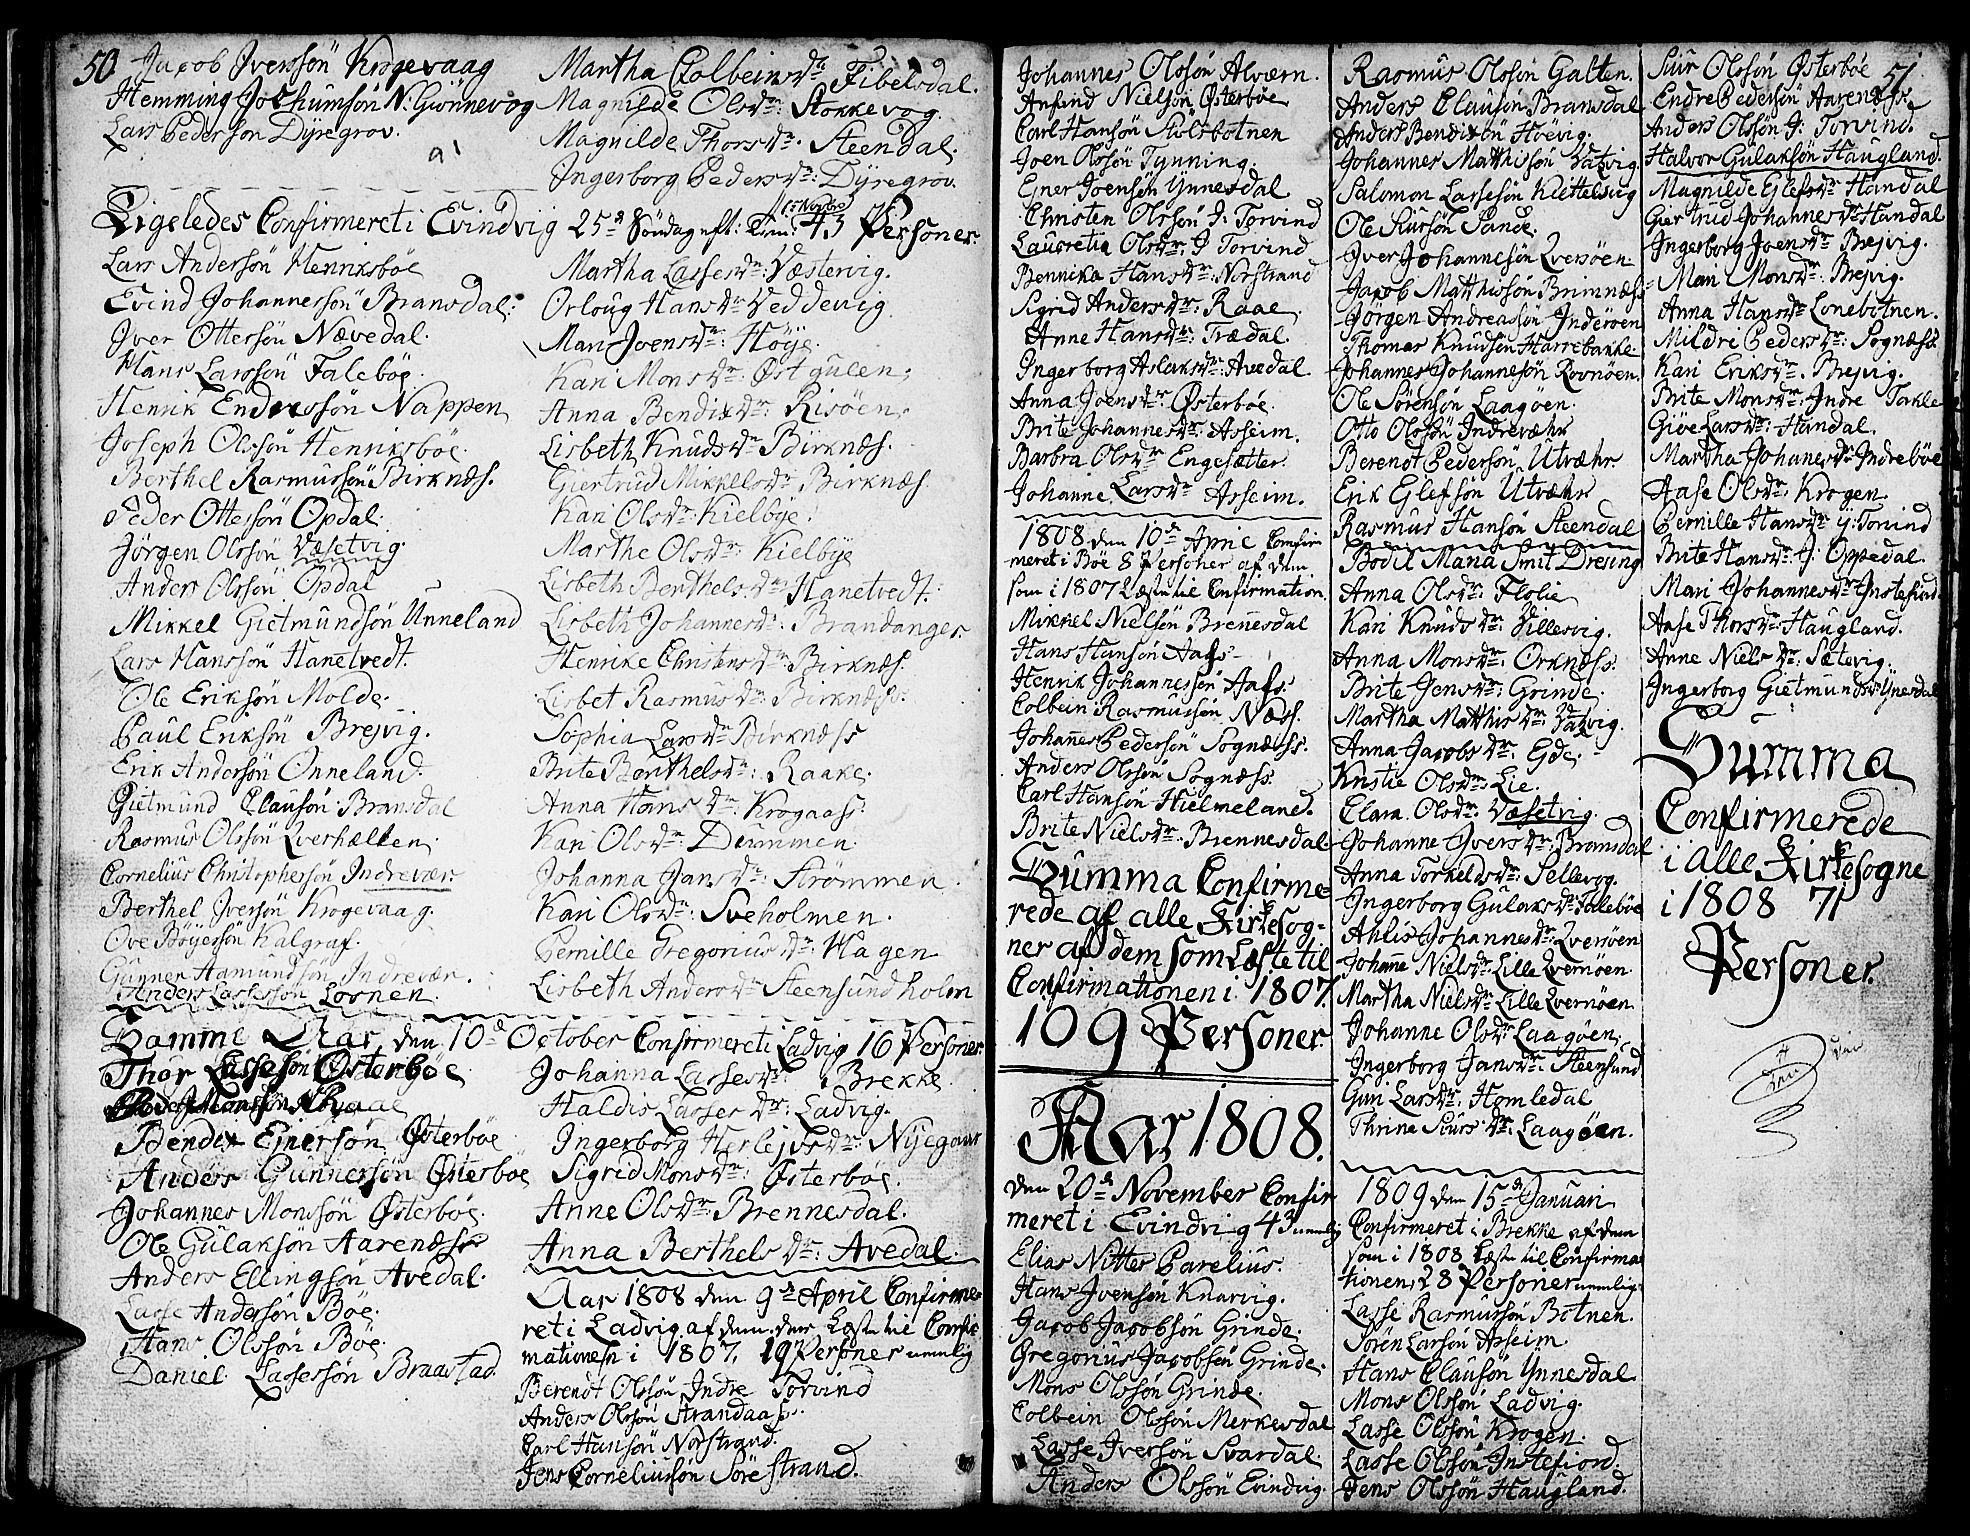 50
Jacob Iverssön Krogevaag
Hemming Jochumsön N. Giönnevog
Lars Pederssön Dyregrov.
Martha Colbeinsdr: Tibelsdal.
Magnilde Olsdr: Stokkevog.
Magnilde Thorsdr: Steendal.
Ingerborg Pedersdr: Dyregrov.
Ligeledes Confirmeret i Evindvig 25de Söndag eft: Trin: 15 Novbr 43 Personer.
Lars Anderssön Henriksböe
Evind Johannessön Bransdal.
Iver Otterssön Nævedal.
Hans Larssön Faleböe.
Henrik Endressön Nappen
Joseph Olssön Henriksböe.
Berthel Rasmussön Birknæs.
Peder Otterssön Opdal.
Jörgen Olssön Væsetvig.
Anders Olssön Opdal
Mikkel Gietmundsön Unneland
Lars Hanssön Hanetvedt.
Ole Eriksön Molde.
Paul Eriksön Brejvig.
Erik Andersön Onneland.
Gietmund Clausön Bransdal
Rasmus Olssön Qverhællen.
Cornelius Christophersön Indrevær.
Berthel Iversön Krogevaag.
Ove Böyersön Kalgraf.
Gunner Hamundsön Indrevær.
Anders Lassessön Loonen.
Martha Lassesdr: Væstervig.
Orloug Hansdr: Veddevig
Mari Joensdr: Höye.
Kari Monsdr: Østgulen.
Anna Bendixdr: Risöen.
Lisbeth Knudsdr: Birknæs.
Giertrud Mikkelsdr: Birknæs.
Kari Olsdr: Kielbye.
Marthe Olsdr: Kielbye
Lisbeth Berthelsdr: Hanetvedt.
Lisbeth Johannesdr: Brandanger.
Henrike Christensdr: Birknæs.
Lisbet Rasmusdr: Birknæss.
Sophia Larsdr: Birknæss
Brite Berthelsdr: Raake.
Anna Hansdr: Krogaas.
Kari Olsdr: Dummen.
Johanna Jansdr: Strömmen.
Kari Olsdr: Sveholmen.
Pernille Gregoriusdr: Hagen
Lisbeth Andersdr: Steensundholm
Samme Aar den 10de October Confirmeret i Ladvig 16 Personer
Thor Lassesön Østerböe
Bendix Ejnersön Østerböe
Anders Gunnersön Østerböe
Johannes Monssön Østerböe.
Ole Gulaksön Aarenæss
Anders Ellingsön Avedal.
Lasse Andersön Böe.
Hans Olssön Böe.
Daniel Lassessön Braastad.
Johanna Lassesdr: i Brekke
Haldis Lassesdr: Ladvig.
Ingerborg Herlejvsdr: Nyegaar
Sigrid Monsdr: Østerböe.
Anne Olsdr: Brennesdal.
Anna Berthelsdr: Avedal.
Aar 1808 den 9de April Confirme=
ret i Ladvig af dem der Læste til Confir
mationen i 1807, 19 Personer nemlig
Berendt Olssön Indre Torvind
Anders Olssön Strandaas.
Carl Hansön Norstrand.
Jens Corneliussön Sörestrand.
Johannes Olssön Alværn.
Anfind Nielsön Østerböe
Carl Hansön Stölsbotnen
Joen Olssön Tynning.
Ejner Joensön Ynnesdal
Christen Olssön I: Torvind
Lauretia Olsdr: I Torvind
Bennika Hansdr: Norstrand
Sigrid Andersdr: Raae.
Anne Hansdr: Trædal.
Ingerborg Aslaksdr: Avedal
Anna Joensdr: Østerböe.
Brite Johannesdr: Asseim.
Barbra Olsdr: Engesætter.
Johanne Larsdr: Asseim.
1808 den 10de April Confir
meret i Böe 8 Personer af dem
som i 1807 Læste til Confirmation.
Mikkel Nielsön Brenesdal
Hans Hansön Aafs
Henrik Johannessön Aafs.
Colbein Rasmussön Næss.
Johanes Pedersön Sognæss.
Anders Olssön Sognæss.
Carl Hansön Hielmeland.
Brite Nielsdr: Brennesdal.
Summa Confirme=
rede af alle Kirkesog=
ner af dem som Læste til
Confirmationen i 1807.
109 Personer.
Aar 1808.
den 20de November Confir
meret i Evindvig 43 nemlig
Elias Nitter Carelius.
Hans Ivensön Knarvig.
Jacob Jacobsön Grinde.
Gregorius Jacobsön Grinde.
Mons Olssön Grinde.
Colbein Olssön Merkesdal
Lasse Iversön Svardal
Anders Olssön Evindvig.
Rasmus Olssön Galten.
Anders Clausön Bransdal
Anders Bendixsön Höevig.
Johannes Matthisön Vatzvig.
Salomon Lassesön Kiettelsvig
Ole Siursön Sande.
Iver Johannesön Qversöen.
Jacob Matthissön Brimnæss
Jörgen Andreassön Inderöen
Thomas Knudsön Harrebakke.
Johannes Johannesön Rovnöen.
Ole Sörensön Laagöen.
Otto Olssön Indrevæhr
Berendt Pedersön Utvæhr
Erik Elefsön Utvæhr
Rasmus Hansön Steendal
Bodil Maria Smit Dresing
Anna Olsdr: Flolie
Kari Knudsdr: Villesvig.
Anna Monsdr: Orknæss.
Brite Jensdr: Grinde.
Martha Matthisdr: Vatzvig.
Anna Jacobsdr: Eide.
Kristie Olsdr: Lie.
Clara Olsdr: Væsetvig.
Johanne Iversdr: Bransdal
Anna Torkeldsdr: Sellevog.
Ingerborg Gulaksdr: Faleböe
Ahlis Johannesdr: Qversöen
Johane Nielsdr: Lille Qvernöen
Martha Nielsdr: Lille Qvernöen
Johanne Olsdr: Laagöen.
Ingerborg Jansdr: Steensund
Guri Larsdr: Homledal
Thrine Siursdr: Laagöen.
1809 den 15de Januari
Confirmeret i Brekke af dem
som i 1808 Læste til Confirma
tionen, 28 Personer nemlig
Lasse Rasmussön Botnen.
Sören Larsön Asseim.
Hans Clausön Ynnesdal
Mons Olssön Ladvig.
Lasse Olssön Krogen.
Lasse Olssön Instefiord.
Jens Olssön Haugland.
51.
Siur Olssön Østerböe
Endre Pedersön Aarenæss.
Anders Olssön I: Torvind.
Halvor Gulaksön Haugland.
Magnilde Elefsdr: Handal
Giertrud Johannesdr: Handal
Ingerborg Ivensdr: Brejvig.
Mari Monsdr: Brejvig.
Anna Hansdr: Lonebotnen.
Mildri Pedersdr: Sognæss.
Kari Eriksdr: Brejvig.
Brite Monsdr: Indre Takle
Giöe Larsdr: Handal.
Martha Johanesdr: Indreböe
Aase Olsdr: Krogen.
Pernille Hansdr: Y: Torvind
Brite Hansdr: I: Oppedal.
Mari Johannesdr: Instefiord.
Aase Thorsdr: Haugland.
Anne Nielsdr: Sætevig.
Ingerborg Gietmundsdr: Ynesdal
Summa
Confirmerede
i alle Kirkesogne
i 1808 71
Personer.